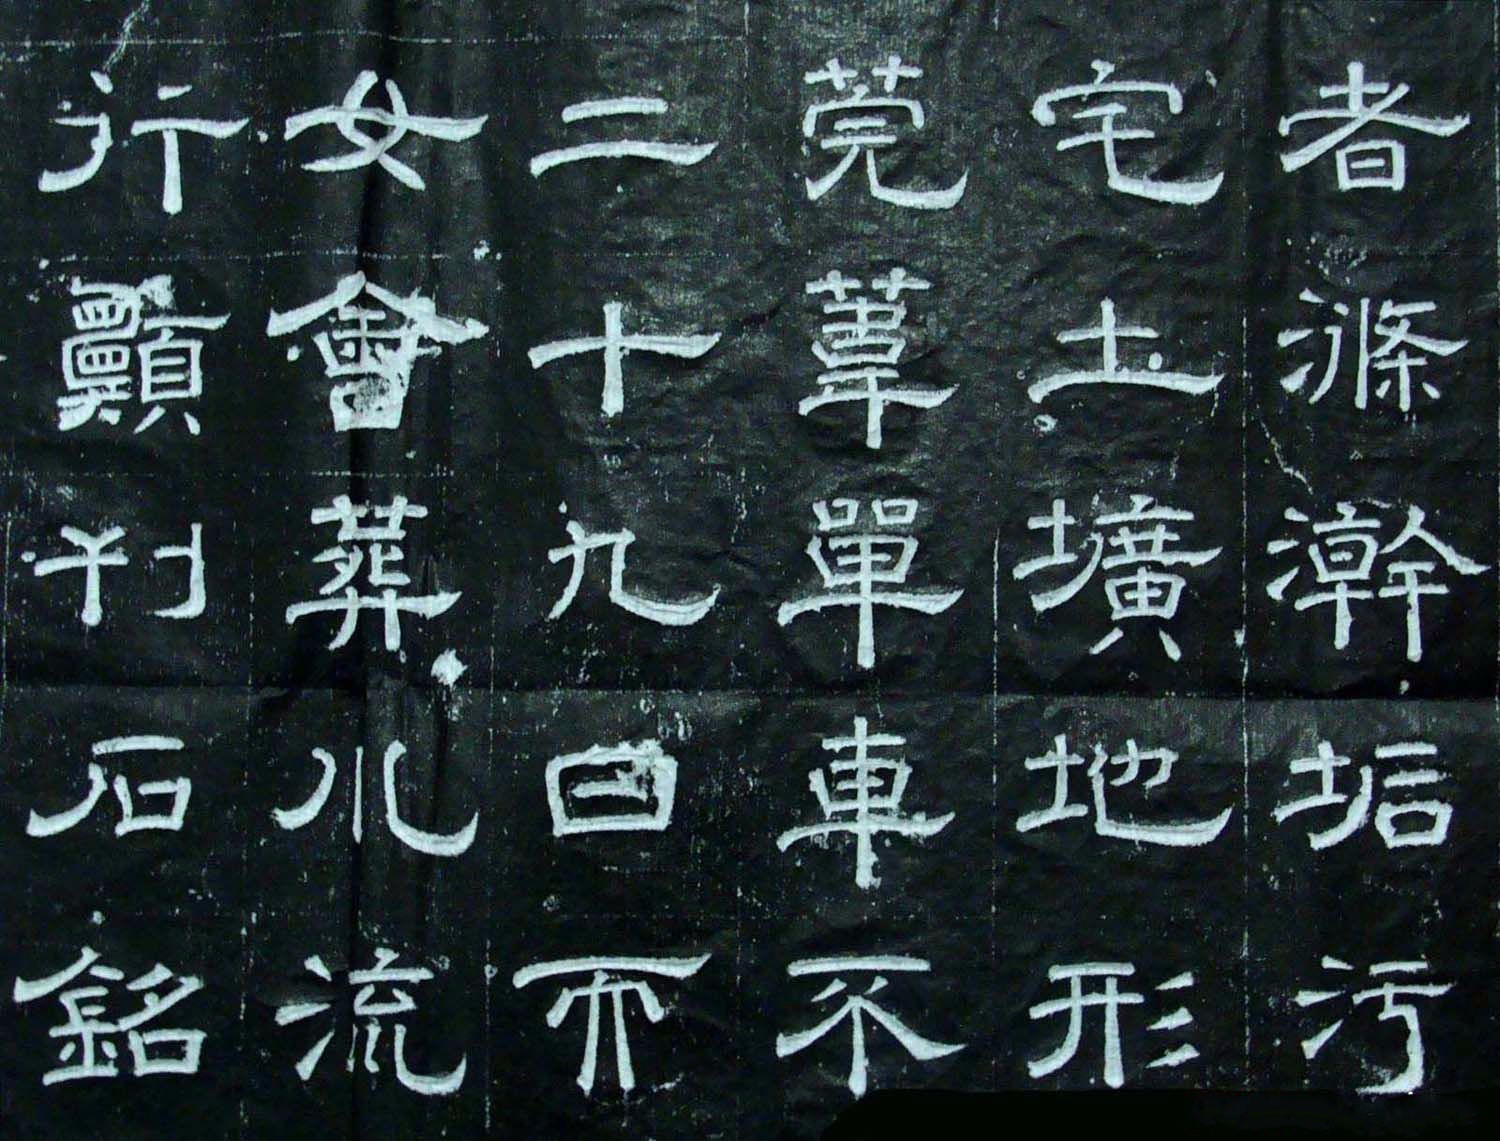 者滌澣垢污
宅土壙地形
莞蕈單車不
二十九日而
女會葬川流
行刊石銘